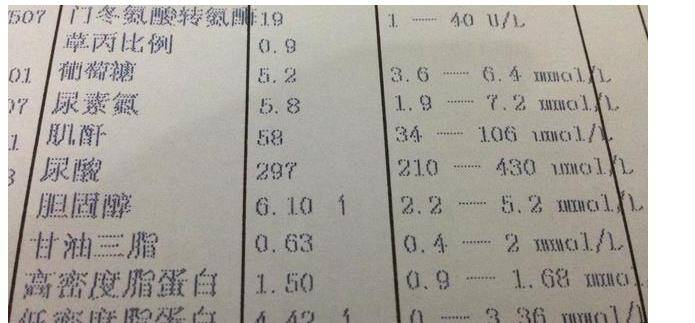 507 门冬氨酸转氨酶 19 1 ---- 40 U/L
草丙比例 0.9
01 葡萄糖 5.2 3.6 ---- 6.4 mmol/L
07 尿素氮 5.8 1.9 ---- 7.2 mmol/L
1 肌酐 58 34 ---- 106 umol/L
8 尿酸 297 210 ---- 430 umol/L
胆固醇 6.10 ↑ 2.2 ---- 5.2 mmol/L
甘油三脂 0.63 0.4 ---- 2 mmol/L
高密度脂蛋白 1.50 0.9 ---- 1.68 mmo
低密度脂蛋白 4.42 ↑ 0 ---- 3.36 mmol/